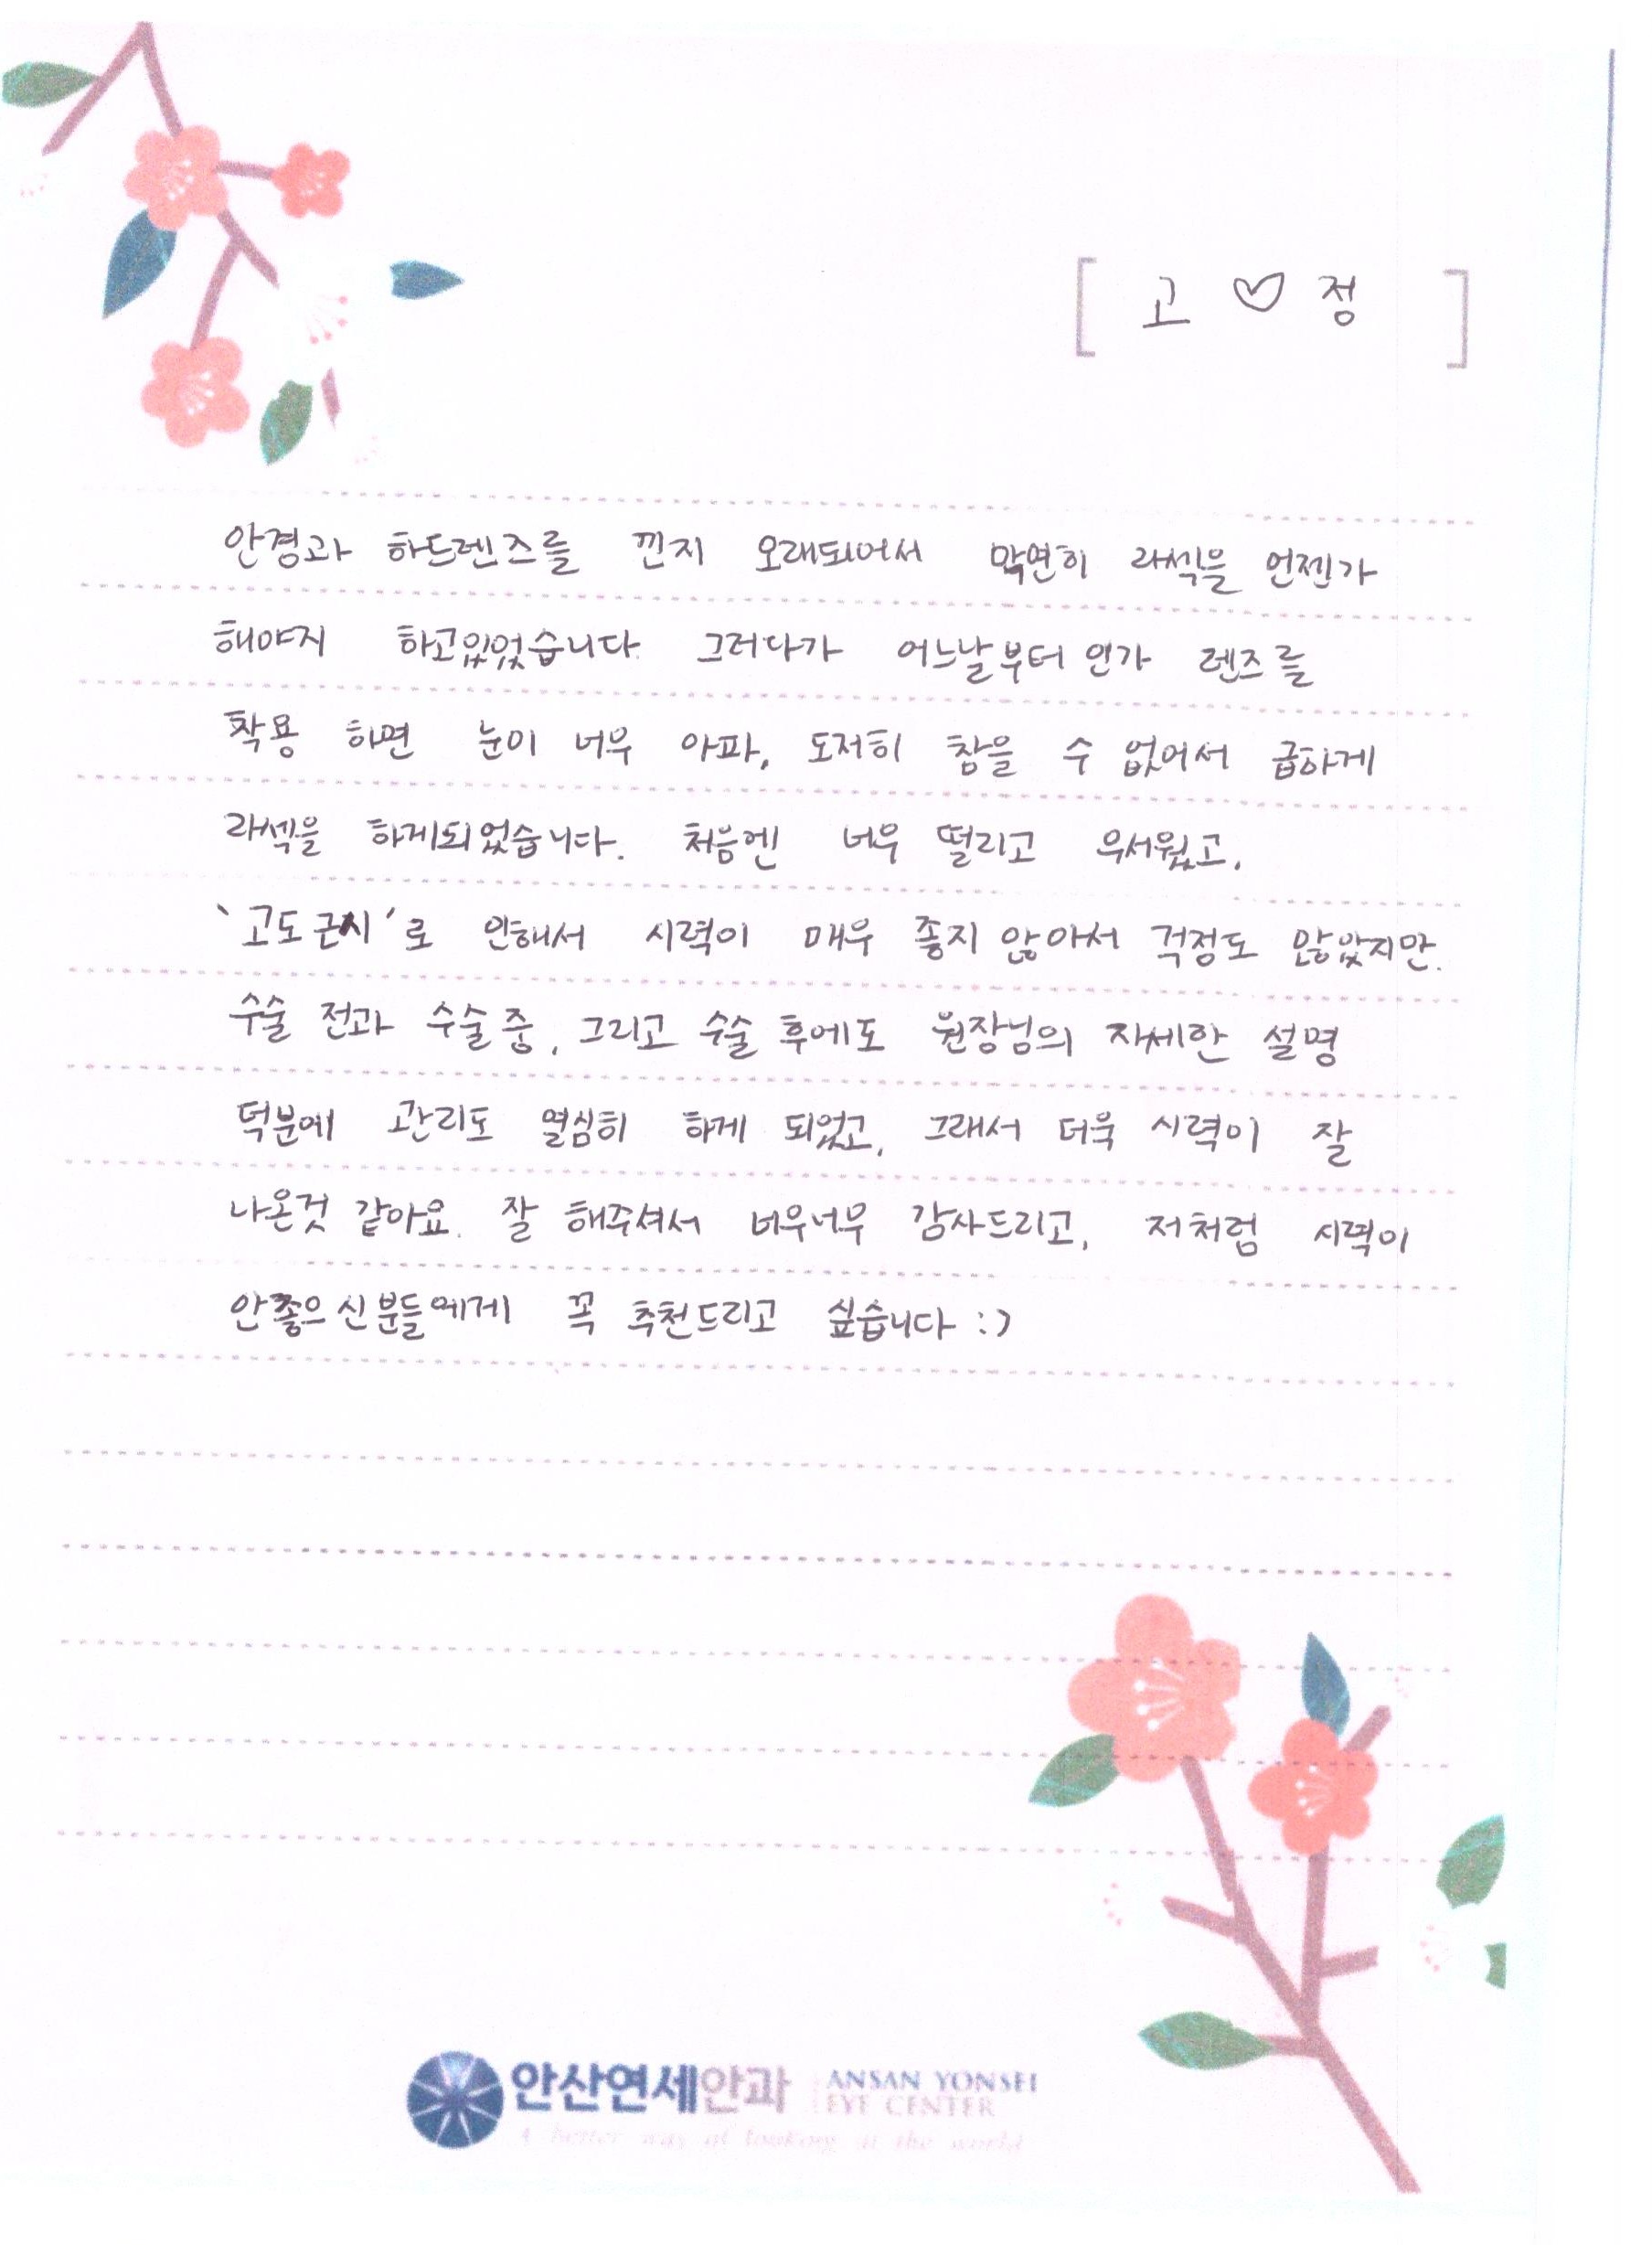 [ 고 ♡ 정 ]
안경과 하드렌즈를 낀지 오래되어서 막연히 라섹을 언젠가
해야지 하고있었습니다. 그러다가 어느날부터 인가 렌즈를
착용 하면 눈이 너무 아파, 도저히 참을 수 없어서 급하게
라섹을 하게되었습니다. 처음엔 너무 떨리고 무서웠고,
'고도근시'로 인해서 시력이 매우 좋지 않아서 걱정도 많았지만.
수술 전과 수술중, 그리고 수술 후에도 원장님의 자세한 설명
덕분에 관리도 열심히 하게 되었고, 그래서 더욱 시력이 잘
나온것 같아요. 잘 해주셔서 너무너무 감사드리고, 저처럼 시력이
안좋으신분들에게 꼭 추천드리고 싶습니다 :)
안산연세안과 ANSAN YONSEI
EYE CENTER
A better way of looking at the world